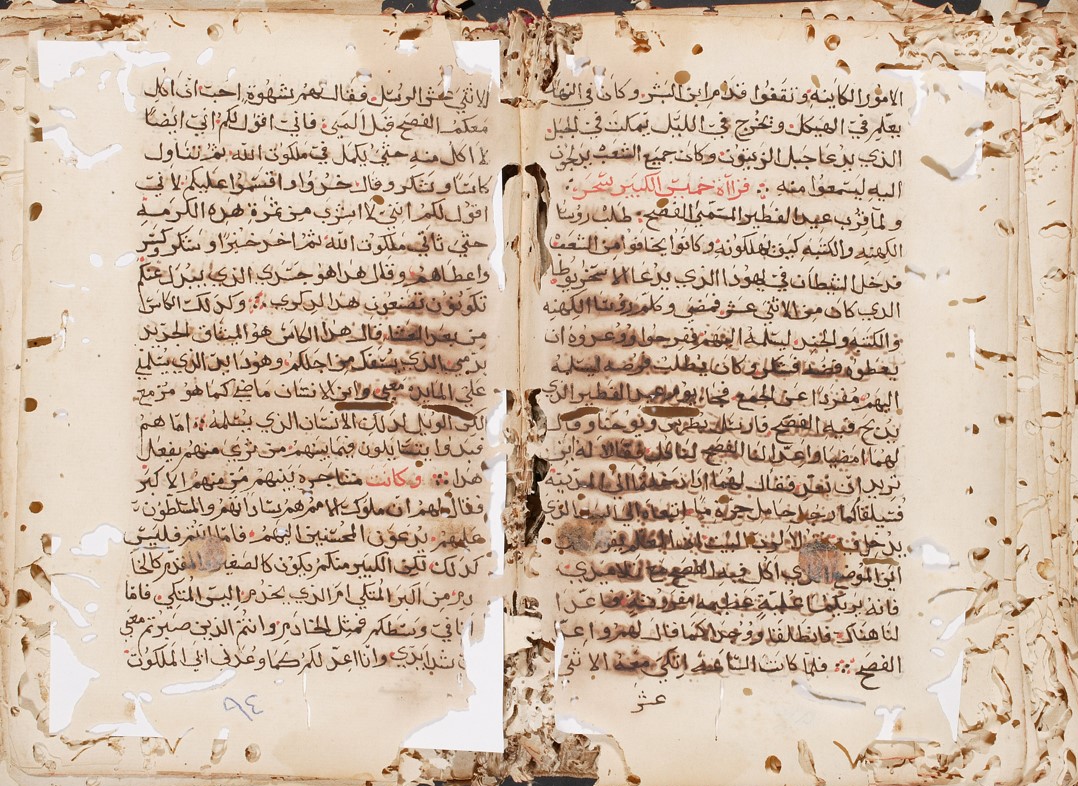 الامور الكاينه وتقفوا قدام ابن البشر وكان في النها
يعلم في الهيكل ويخرج في الليل يمكت في الجبل
الذي يدعا جبل الزيتون وكان جميع الشعب يدلجون
اليه ليسمعوا منه قراة خميس الكبير سحر
ولما قرب عيد الفطير المسمى الفصح طلب روسا
الكهنه والكتبه كيف يهلكونه وكانوا يخافوا من الشعب
فدخل الشيطان في يهودا الذي يدعا الاسخريوطا
الذي كان من الاثني عشر فمضى وكلم روسا الكهنه
والكتبه والجند ليسلمه اليهم ففرحوا ووعدوه ان
يعطوه فضه فشكر وكان يطلب فرصه ليسلمه
اليهم مفردا عن الجمع فجا يوم عيد الفطير الذي
يدبح فيه الفصح فارسل بطرس ويوحنا وقال
لهما امضيا واعدا لنا الفصح لناكل فقالا له اين
تريد ان نعد فقال لهما اذا دخلتما الى المدينه
فسيلقاكما رجل حامل جرة ما اتبعاه الى البيت الذي
يدخل فقولا لرب البيت المعلم يقول
اين الموضع الذي اكل فيه الفصح مع تلاميدي
فانه يريكما علية عظيمه مفروشه فاعدا
لنا هناك فانطلقا ووجدا كما قال لهم واعدا
الفصح فلما كانت الساعه اتكى معه الاثني
عشر
الاثني عشر الرسل فقال لهم شهوة احببت ان اكل
معكم الفصح قبل المي فاني اقول لكم اني ايضا
لا اكل منه حتى يكمل في ملكوت الله ثم تناول
كاسا وشكر وقال خدوا واقسموا عليكم لاني
اقول لكم انني لا اشرب من ثمرة هده الكرمه
حتى تاتي ملكوت الله ثم اخد خبزا وشكر وكسر
واعطاهم وقال هدا هو جسدي الذي يبدل عنكم
تكونون تصنعون هدا لدكري وكدلك الكاس
من بعد العشا قال هدا الكاس هو الميثاق الجديد
بدمي الذي يسفك من اجلكم وهودا اليد الذي تسلمني
على المايده معي وابن الانسان ماضي كما هو مزمع
لكن الويل لدلك الانسان الذي يسلمه اما هم
فبدوا يتسايلون فيما بينهم من ترى منهم يفعل
هدا وكانت مشاجره بينهم من منهم الاكبر
فقال لهم ان ملوك الامم هم ساداتهم والمتسلطون
عليهم يدعون المحسنين اليهم فاما انتم فليس
كدلك لكن الكبير منكم يكون كالصغير والمقدم كالخا
دم من اكبر المتكي ام الذي يخدم اليس المتكي فاما
انا في وسطكم فمثل الخادم وانتم الذين صبرتم معي
في شدايدي وانا اعد لكم كما وعدني ابي الملكوت
٩٤